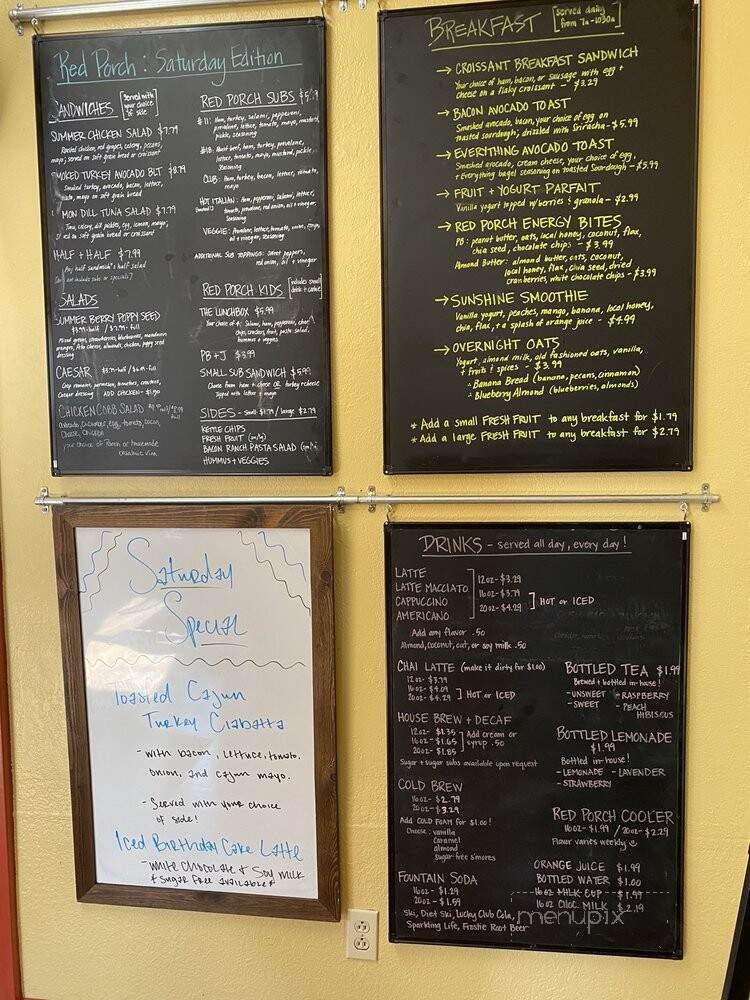 Red Porch: Saturday Edition
SANDWICHES [served with your choice of side]
SUMMER CHICKEN SALAD $7.79
Roasted chicken, red grapes, celery, pecans,
mayo; served on soft grain bread or croissant
SMOKED TURKEY AVOCADO BLT $8.79
Smoked turkey, avocado, bacon, lettuce,
mayo on soft grain bread
DILL TUNA SALAD $7.79
Tuna, celery, dill pickles, egg, lemon, mayo;
on soft grain bread or croissant
HALF + HALF $7.99
Any half sandwich + half salad
SALADS
SUMMER BERRY POPPY SEED
Mixed greens, strawberries, blueberries, mandarin
oranges, feta cheese, almonds, chicken, poppy seed
dressing
CAESAR
Crisp romaine, parmesan, tomatoes, croutons,
Caesar dressing ADD CHICKEN - $1.90
CHICKEN COBB SALAD
avocado, cucumber, egg, tomato, bacon,
cheese, chicken
your choice of Ranch or homemade
RED PORCH SUBS
#11: Ham, turkey, salami, pepperoni,
provolone, lettuce, tomato, mayo, mustard,
pickle, seasoning
#18: Roast beef, ham, turkey, provolone,
lettuce, tomato, mayo, mustard, pickle
seasoning
CLUB: Ham, turkey, bacon, lettuce, tomato,
mayo
HOT ITALIAN: Ham, pepperoni, salami, lettuce,
tomato, provolone, red onion, oil + vinegar,
seasoning
VEGGIE: Provolone, lettuce, tomato, onion,
oil + vinegar, seasoning
ADDITIONAL SUB TOPPINGS: sweet peppers,
red onion, oil + vinegar
RED PORCH KIDS [includes small drink + cookie]
THE LUNCHBOX $5.99
Your choice of: Salami, ham, pepperoni, cheese
chips, crackers, fruit, pasta salad,
hummus + veggies
PB + J $3.99
SMALL SUB SANDWICH $5.99
Choose from ham + cheese OR turkey + cheese
Topped with lettuce + mayo
SIDES - Small $1.79 / large $2.79
KETTLE CHIPS
FRESH FRUIT
BACON RANCH PASTA SALAD
HUMMUS + VEGGIES
BREAKFAST [served daily from 7a-1030a]
→ CROISSANT BREAKFAST SANDWICH
Your choice of ham, bacon, or sausage with egg +
cheese on a flaky croissant - $3.29
→ BACON AVOCADO TOAST
Smashed avocado, bacon, your choice of egg on
toasted sourdough; drizzled with Sriracha - $5.99
→ EVERYTHING AVOCADO TOAST
Smashed avocado, cream cheese, your choice of egg,
+ everything bagel seasoning on toasted sourdough - $5.99
→ FRUIT + YOGURT PARFAIT
Vanilla yogurt topped w/berries + granola - $2.99
→ RED PORCH ENERGY BITES
PB: peanut butter, oats, local honey, coconut, flax,
chia seed, chocolate chips - $3.99
Almond Butter: almond butter, oats, coconut,
local honey, flax, chia seed, dried
cranberries, white chocolate chips - $3.99
→ SUNSHINE SMOOTHIE
Vanilla yogurt, peaches, mango, banana, local honey,
chia, flax, + a splash of orange juice - $4.99
→ OVERNIGHT OATS
Yogurt, almond milk, old fashioned oats, vanilla,
+ fruits + spices - $3.99
- Banana Bread (banana, pecans, cinnamon)
- Blueberry Almond (blueberries, almonds)
* Add a small FRESH FRUIT to any breakfast for $1.79
* Add a large FRESH FRUIT to any breakfast for $2.79
Saturday
Special
Toasted Cajun
Turkey Ciabatta
- with bacon, lettuce, tomato,
onion, and cajun mayo.
- Served with your choice
of side!
Iced Birthday Cake Latte
- White Chocolate + Soy Milk
* Sugar Free available *
DRINKS - served all day, every day!
LATTE
LATTE MACCIATO
CAPPUCCINO
AMERICANO
12oz - $3.29
16oz - $3.79
20oz - $4.29
HOT or ICED
Add any flavor .50
Almond, coconut, oat, or soy milk .50
CHAI LATTE (make it dirty for $1.00)
12oz - $3.79
16oz - $4.09
20oz - $4.29
HOT or ICED
HOUSE BREW + DECAF
12oz - $1.35
16oz - $1.65
20oz - $1.85
Add cream or
syrup .50
Sugar + sugar subs available upon request
COLD BREW
16oz - $2.79
20oz - $3.29
Add COLD FOAM for $1.00!
Choose: vanilla
caramel
almond
sugar-free s'mores
FOUNTAIN SODA
16oz - $1.29
20oz - $1.59
Ski, Diet Ski, Lucky Club Cola,
Sparkling Life, Frostie Root Beer
BOTTLED TEA $1.99
Brewed + bottled in-house!
- UNSWEET - RASPBERRY
- SWEET - PEACH
HIBISCUS
BOTTLED LEMONADE
$1.99
Bottled in-house!
- LEMONADE - LAVENDER
- STRAWBERRY
RED PORCH COOLER
16oz - $1.99 / 20oz - $2.29
Flavor varies weekly
ORANGE JUICE $1.99
BOTTLED WATER $1.00
16 oz MILK CUP - $1.99
16 oz CHOC. MILK $2.19
menupix